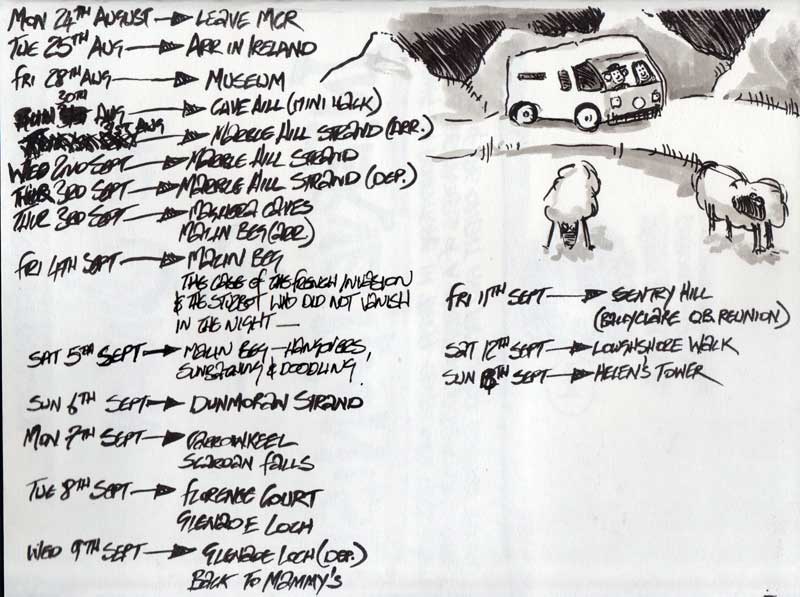 MON 24TH AUGUST → LEAVE MCR
TUE 25TH AUG → ARR IN IRELAND
FRI 28TH AUG → MUSEUM
30TH AUG → CAVE HILL (MINI WALK)
31ST AUG → MARBLE HILL STRAND (ARR.)
WED 2ND SEPT → MARBLE HILL STRAND
THUR 3RD SEPT → MARBLE HILL STRAND (DEP.)
THUR 3RD SEPT → MAGHERA CAVES
MALIN BEG (ARR)
FRI 4TH SEPT → MALIN BEG
THE CASE OF THE FRENCH INVASION
& THE STREET WHO DID NOT VANISH
IN THE NIGHT —
SAT 5TH SEPT → MALIN BEG – HANGOVERS,
SUNBATHING & DOODLING.
SUN 6TH SEPT → DUNMORAN STRAND
MON 7TH SEPT → CARROWKEEL
SCARDAN FALLS
TUE 8TH SEPT → FLORENCE COURT
GLENADE LOCH
WED 9TH SEPT → GLENADE LOCH (DEP.)
BACK TO MAMMY'S
FRI 11TH SEPT → SENTRY HILL
(BALLYCLARE O.B. REUNION)
SAT 12TH SEPT → LOUGHSHORE WALK
SUN TH SEPT → HELEN'S TOWER